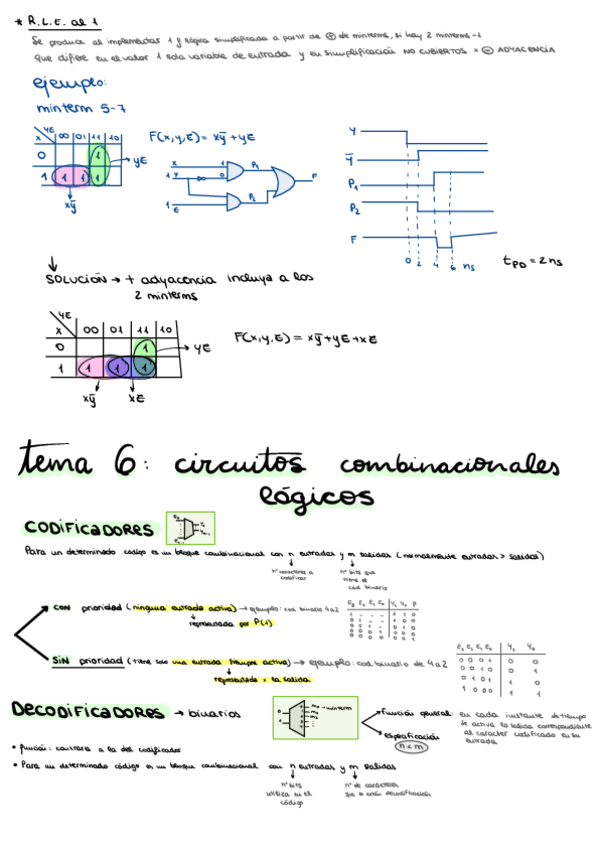 * R.L.E. al 1
Se produce al implementar 1 f lógica simplificada a partir de ⊕ de minterms, si hay 2 minterms-1
que difiere en el valor 1 sola variable de entrada y en simplificación NO CUBIERTOS x ⊖ ADYACENCIA
ejemplo:
minterm 5-7
YE
X 00 01 11 10
0 1
1 1 1 1
yE
xy̅
F(x,y,E) = xy̅ + yE
X 1
1 Y 0
1 E
P1
P2
F
Y
Y̅
P1
P2
F
0 2 4 6 ns
tPD = 2 ns
SOLUCIÓN → + adyacencia incluya a los
2 minterms
YE
X 00 01 11 10
0 1
1 1 1 1
yE
xy̅ xE
F(x,y,E) = xy̅+yE+xE
tema 6: circuitos combinacionales
lógicos
CODIFICADORES
Para un determinado código es un bloque combinacional con n entradas y m salidas (normalmente entradas > salidas)
nº caracteres a
codificar
nº bits que
tiene el
cod. binario
CON prioridad (ninguna entrada activa) → ejemplo: cod. binario 4 a 2
representada por P(1)
E3 E2 E1 E0 Y1 Y0 P
SIN prioridad (tiene solo una entrada siempre activa) → ejemplo: cod. binario de 4 a 2
representada x la salida.
E3 E2 E1 E0 Y1 Y0
0 0 0 1 0 0
0 0 1 0 0 1
0 1 0 1 1 0
1 0 0 0 1 1
DECODIFICADORES → binarios
minterm
función general: en cada instante de tiempo
se activa la salida correspondiente
al caracter codificado en su
entrada.
especificación
n < m
• función: contraria a la del codificador
• Para un determinado código es un bloque combinacional con n entradas y m salidas
nº bits
utiliza en el
código
nº de caracteres